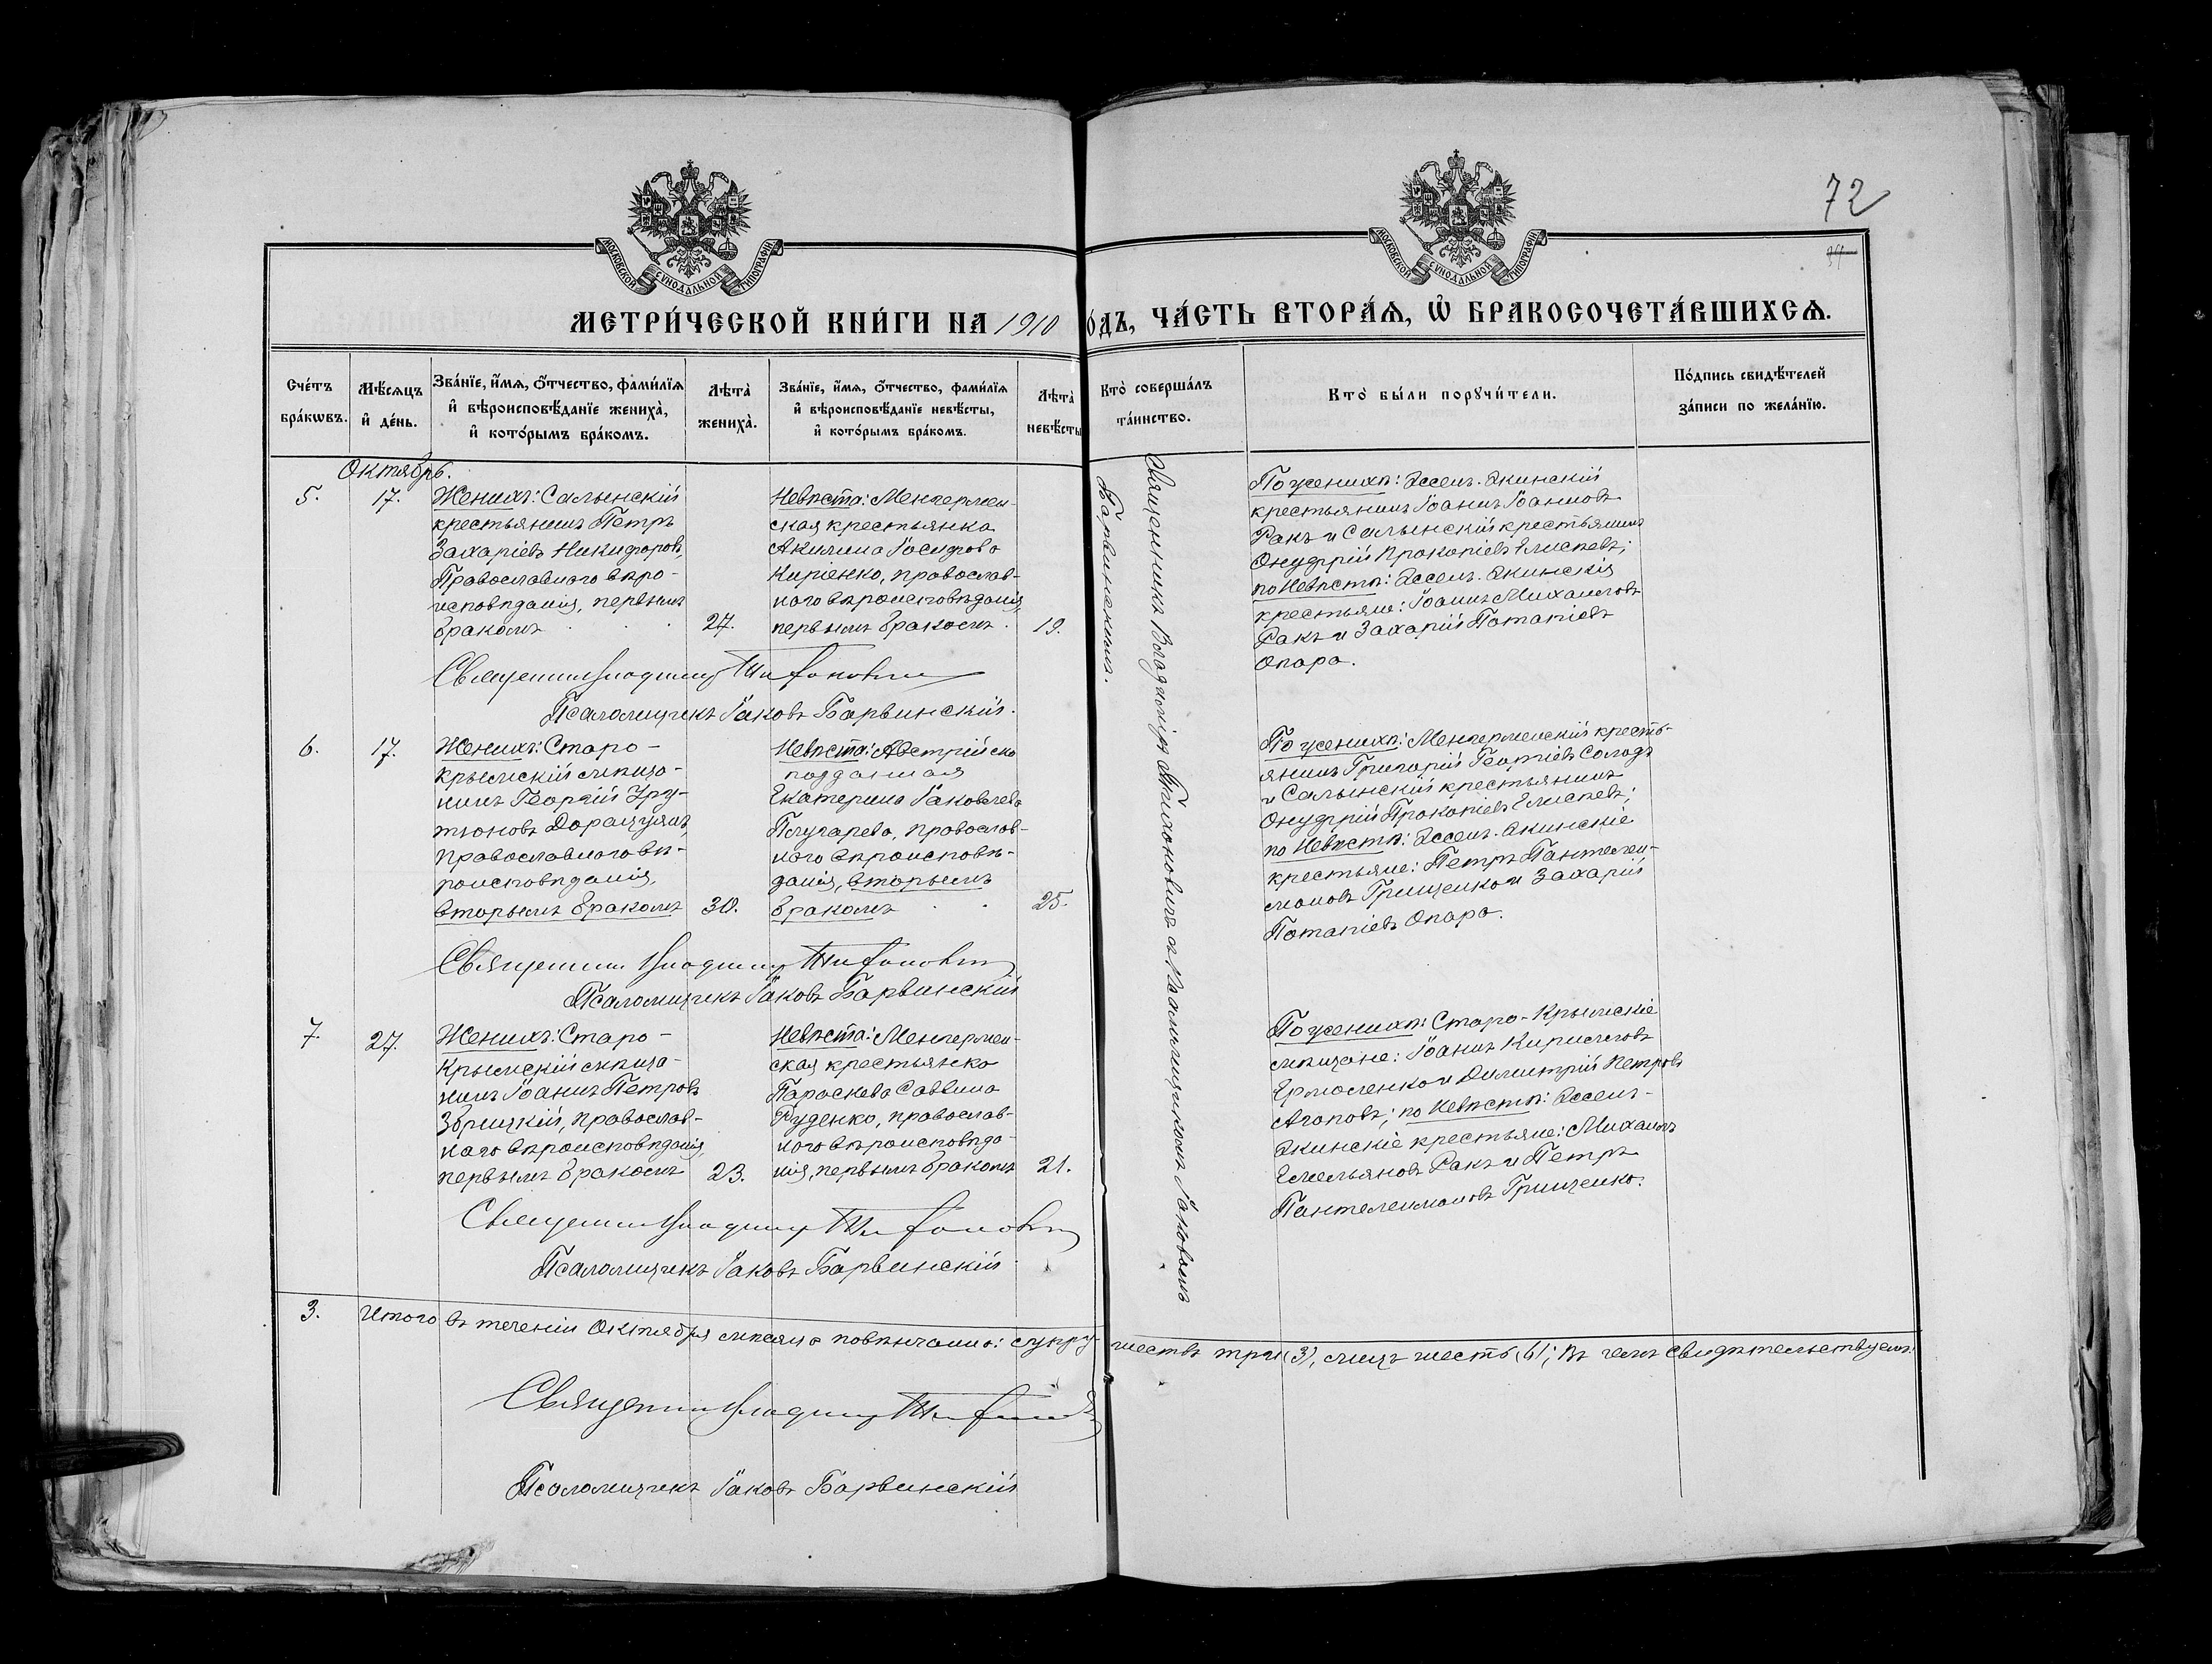 72
МОСКОВСКОЙ СѴНОДАЛЬНОЙ ТИПОГРАФІИ
МОСКОВСКОЙ СѴНОДАЛЬНОЙ ТИПОГРАФІИ
МЕТРИ́ЧЕСКОЙ КНИ́ГИ НА 1910 ѺДЪ, ЧА́СТЬ ВТОРА́Ѧ, Ѡ҆ БРАКОСОЧЕТА́ВШИХСѦ.
Сче́тъ бра́кѡвъ.
Мѣ́сѧцъ и҆ де́нь.
Зва́нїе, и҆́мѧ, ѻ҆́тчество, фами́лїѧ и҆ вѣроисповѣ́данїе жениха̀, и҆ кото́рымъ бра́комъ.
Лѣта̀ жениха̀.
Зва́нїе, и҆́мѧ, ѻ҆́тчество, фами́лїѧ и҆ вѣроисповѣ́данїе невѣ́сты, и҆ кото́рымъ бра́комъ.
Лѣта̀ невѣ́сты
Кто̀ соверша́лъ та́инство.
Кто̀ бы́ли порꙋчи́тели.
По́дпись свидѣ́телей за́писи по жела́нїю.
Октябрь.
5.
17.
Женихъ: Салынскій
крестьянинъ Петръ
Захаріевъ Никифоровъ,
Православнаго вѣро-
исповѣданія, первымъ
бракомъ
27.
Невѣста: Менгермен-
ская крестьянка
Акилина Іосифова
Киріенко, православ-
наго вѣроисповѣданія,
первымъ бракомъ
19.
Священникъ Владиміръ Тихоновичъ съ Псаломщикомъ Іаковомъ
Барвинскимъ.
По женихѣ: Ассенъ-Экинскій
крестьянинъ Іоаннъ Іоанновъ
Ракъ и Салынскій крестьянинъ
Онуфрій Прокопіевъ Елисѣевъ;
по Невѣстѣ: Ассенъ-Экинскія
крестьяне: Іоаннъ Михаиловъ
Ракъ и Захарій Потапіевъ
Опара.
Священникъ Владиміръ Тихоновичъ
Псаломщикъ Іаковъ Барвинскій.
6.
17.
Женихъ: Старо-
крымскій мѣща-
нинъ Георгій Ару-
тюновъ
православнаго вѣ-
роисповѣданія,
вторымъ бракомъ
30.
Невѣста: Австрійско
подданная
Екатерина Іаковлева
православ-
наго вѣроисповѣ-
данія, вторымъ
бракомъ
25.
По женихѣ: Менгерменскій кресть-
янинъ Григорій Георгіевъ Солодъ
и Салынскій крестьянинъ
Онуфрій Прокопіевъ Елисѣевъ;
по Невѣстѣ: Ассенъ-Экинскіе
крестьяне: Петръ Пантелеи-
моновъ Грищенко и Захарій
Потапіевъ Опара.
Священникъ Владиміръ Тихоновичъ
Псаломщикъ Іаковъ Барвинскій
7.
27.
Женихъ: Старо-
Крымскій мѣща-
нинъ Іоаннъ Петровъ
Збрицкій, православ-
наго вѣроисповѣданія,
первымъ бракомъ
23.
Невѣста: Менгермен-
ская крестьянка
Параскева Саввина
Руденко, православ-
наго вѣроисповѣда-
нія, первымъ бракомъ
21.
По женихѣ: Старо-Крымскіе
мѣщане: Іоаннъ Кирилловъ
Ермоленко и Димитрій Петровъ
Агаповъ; по Невѣстѣ: Ассенъ-
Экинскіе крестьяне: Михаилъ
Емельяновъ Ракъ и Петръ
Пантелеимоновъ Грищенко.
Священникъ Владиміръ Тихоновичъ
Псаломщикъ Іаковъ Барвинскій
3.
Итого въ теченіи Октября мѣсяца повѣнчано: супру-
жествъ три (3), лицъ шесть (6); въ чемъ свидѣтельствуемъ:
Священникъ Владиміръ Тихоновичъ
Псаломщикъ Іаковъ Барвинскій